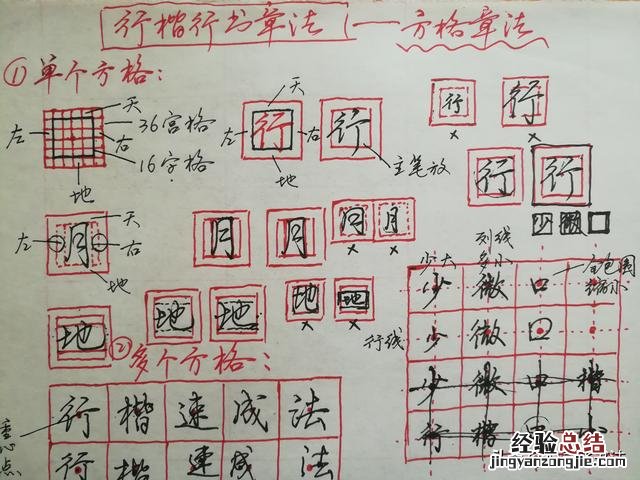 行楷行书章法——方格章法
①单个方格:
天
左
36宫格
右
16字格
地
天
左
行
右
地
行
主笔放
行
×
行
×
行
行
少
微
口
天
左
月
右
地
月
月
月
月
×
×
地
地
地
地
地
×
×
少大
多小
列线
全包围
缩小
行线
少
微
口
少
微
口
少
微
口
楷
行
楷
口
②多个方格:
重心点
行
楷
速
成
法
行
楷
速
成
法
经验总结
jingyanzongjie.com